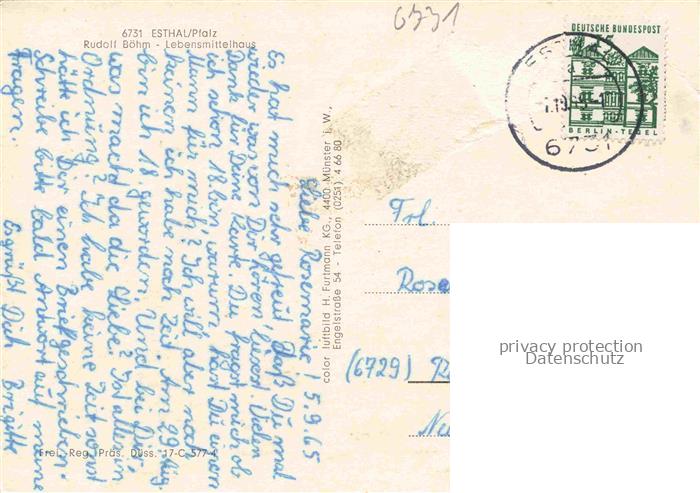 6731 ESTHAL/Pfalz
Rudolf Böhm - Lebensmittelhaus
6731
DEUTSCHE BUNDESPOST
15
BERLIN-TEGEL
ESTHAL
6731
Liebe Rosemarie! 5.9.65
Es hat mich sehr gefreut, daß Du mal
wieder was von Dir hören liesest. Vielen
Dank für Deine Karte. Du fragst mich, ob
ich schon 18 bin, warum. Hast Du einen
Mann für mich? Ich will aber noch
keinen, ich habe noch Zeit. Am 29. Aug.
bin ich 18 geworden. Und bei Dir,
was macht da die Liebe? Ist alles in
Ordnung? Ich habe keine Zeit sonst
hätte ich Dir einen Brief geschrieben.
Schreibe bitte bald Antwort auf meine
Fragen.
Es grüßt Dich Brigitte
color luftbild H. Furtmann KG., 4400 Münster i. W.,
Engelstraße 54 - Telefon (0251) 4 66 80
Frei.-Reg. Präs. Düss. 17-C 577-4
Frl.
Rose
(6729)
privacy protection
Datenschutz